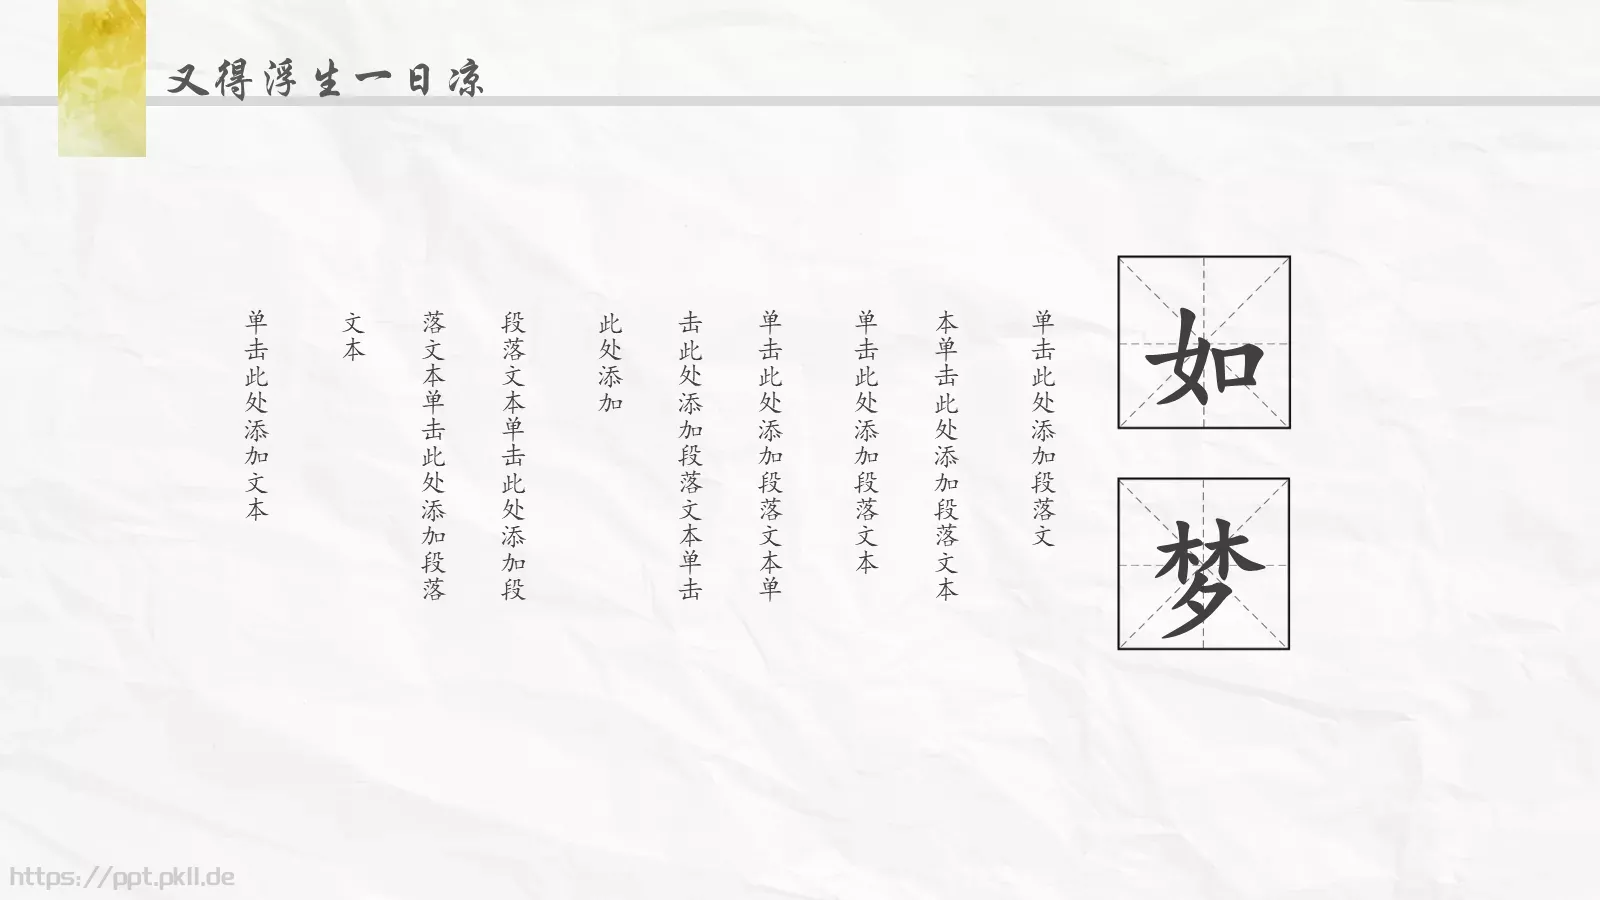 又得浮生一日凉
如
梦
单击此处添加段落文
本单击此处添加段落文本
单击此处添加段落文本
单击此处添加段落文本单
击此处添加段落文本单击
此处添加
段落文本单击此处添加段
落文本单击此处添加段落
文本
单击此处添加文本
https://ppt.pkll.de